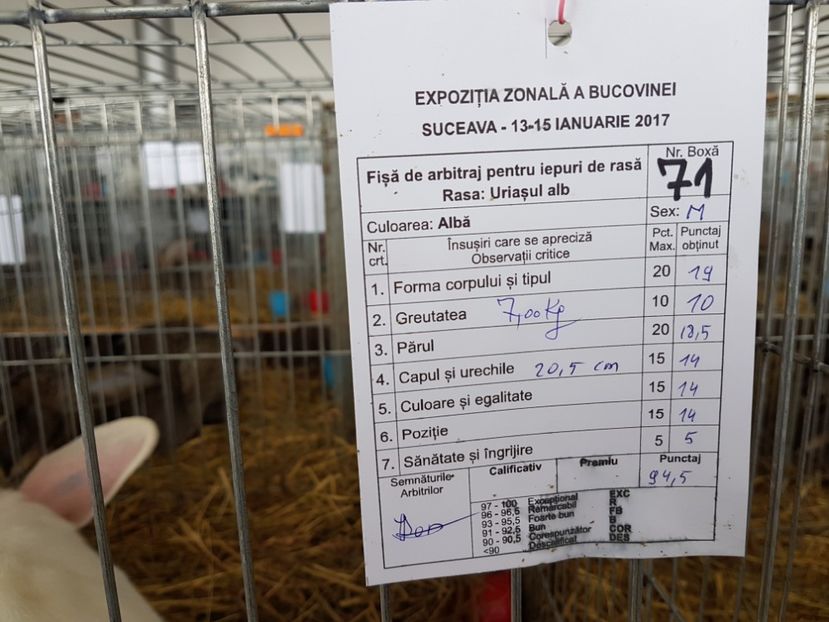 EXPOZIȚIA ZONALĂ A BUCOVINEI
SUCEAVA - 13-15 IANUARIE 2017
Fișă de arbitraj pentru iepuri de rasă
Rasa: Uriașul alb
Nr. Boxă
71
Culoarea: Albă
Sex: M
Nr. crt.
Însușiri care se apreciză
Observații critice
Pct. Max.
Punctaj obținut
1. Forma corpului și tipul 20 19
2. Greutatea 7,00 Kg 10 10
3. Părul 20 18,5
4. Capul și urechile 20,5 cm 15 14
5. Culoare și egalitate 15 14
6. Poziție 15 14
7. Sănătate și îngrijire 5 5
Semnăturile Arbitrilor
Calificativ
Premiu
Punctaj
94,5
97 - 100 Excepțional EXC
96 - 96,5 Remarcabil R
93 - 95,5 Foarte bun FB
91 - 92,5 Bun B
90 - 90,5 Corespunzător COR
<90 Descalificat DES